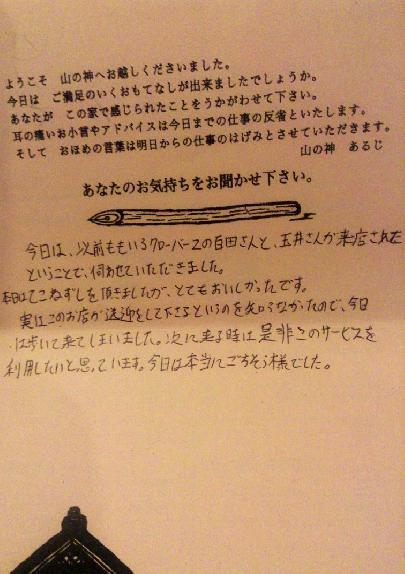 ようこそ　山の神へお越しくださいました。
今日は　ご満足のいくおもてなしが出来ましたでしょうか。
あなたが　この家で感じられたことをうかがわせて下さい。
耳の痛いお小言やアドバイスは今日までの仕事の反省といたします。
そして　おほめの言葉は明日からの仕事のはげみとさせていただきます。
山の神　あるじ
あなたのお気持ちをお聞かせ下さい。
今日は、以前ももいろクローバーZの百田さんと、玉井さんが来店された
ということで、伺わせていただきました。
本日はてこねずしを頂きましたが、とてもおいしかったです。
実はこのお店が送迎をして下さるというのを知らなかったので、今日
は歩いて来てしまいました。次に来る時は是非このサービスを
利用したいと思っています。今日は本当にごちそう様でした。